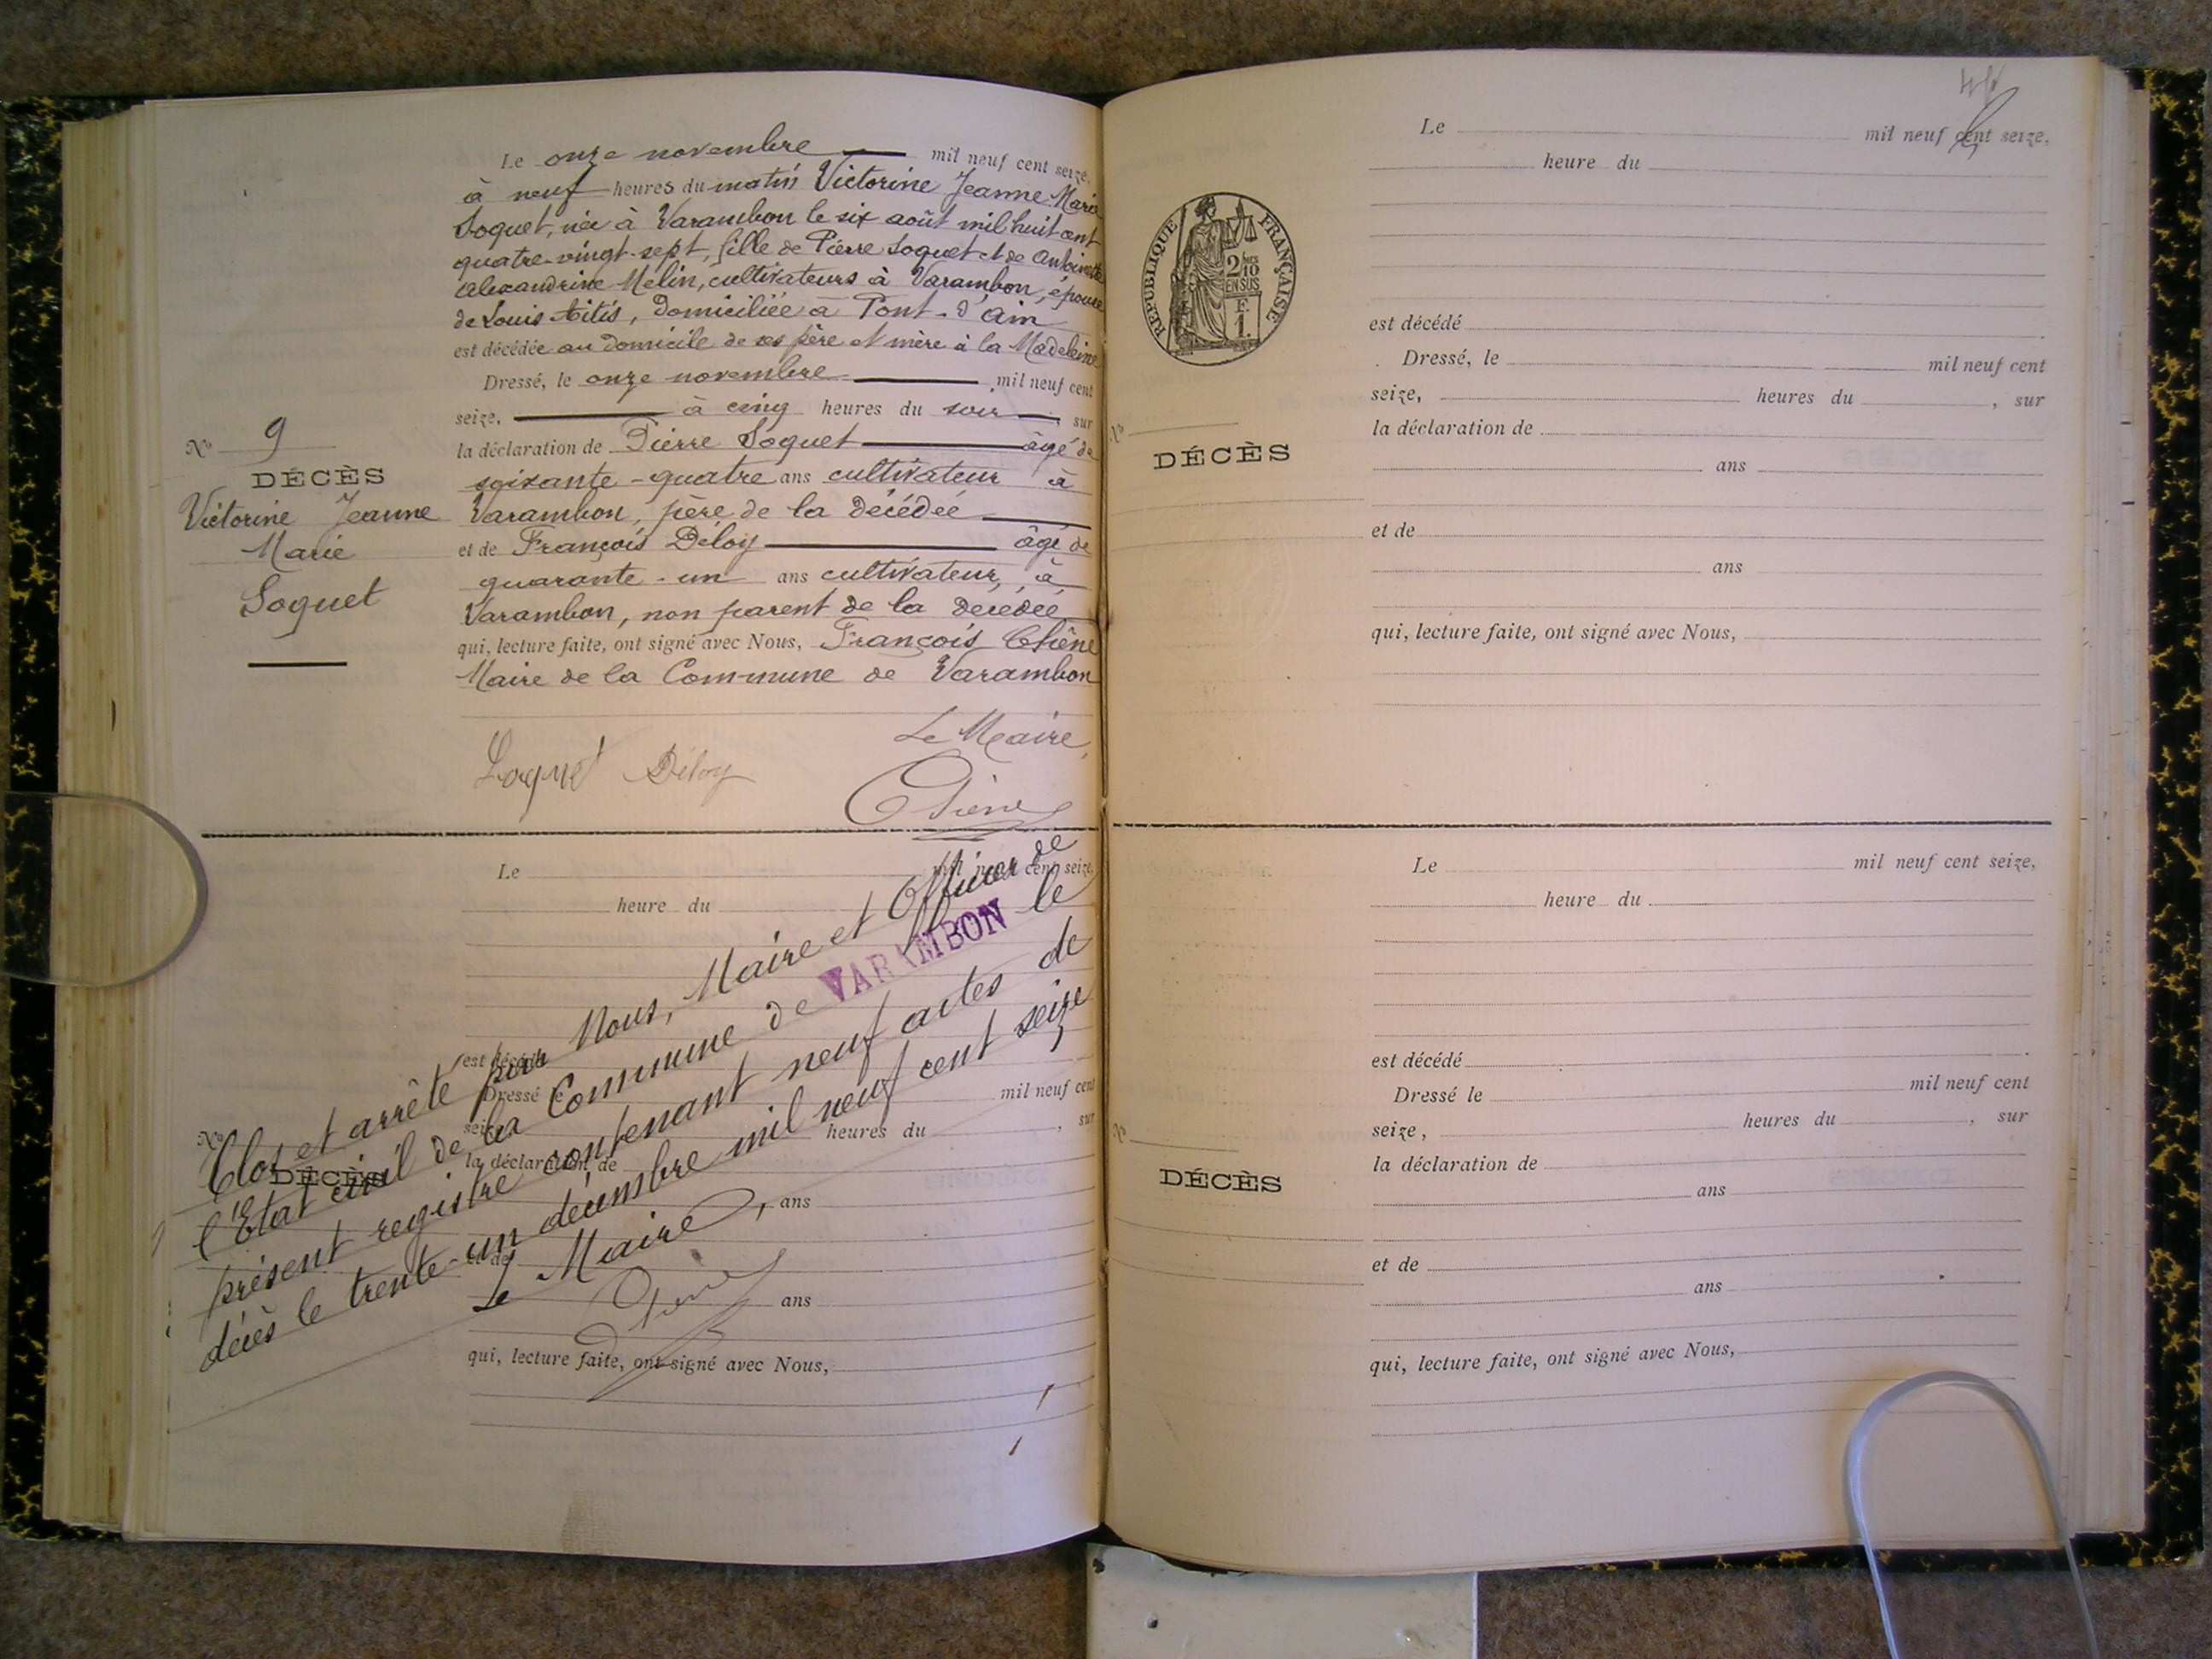 Le onze novembre mil neuf cent seize,
à neuf heures du matin Victorine Jeanne Marie
Soquet, née à Varambon le six août mil huit cent
quatre-vingt-sept, fille de Pierre Soquet et de Antoinette
Alexandrine Melin, cultivateurs à Varambon, épouse
de Louis, domiciliée à Pont-d'Ain
est décédée au domicile de ses père et mère à la Madeleine
Dressé, le onze novembre mil neuf cent
seize, à cinq heures du soir, sur
la déclaration de Pierre Soquet âgé de
soixante-quatre ans cultivateur à
Varambon, père de la décédée
et de François Déloy âgé de
quarante-un ans cultivateur, à
Varambon, non parent de la décédée
qui, lecture faite, ont signé avec Nous, François Chêne
Maire de la Commune de Varambon
N° 9
DÉCÈS
Victorine Jeanne
Marie
Soquet
Le Maire,
Soquet Déloy
Chêne
Le mil neuf cent seize,
heure du
est décédé
Dressé le mil neuf cent
seize, heures du , sur
N°
DÉCÈS
la déclaration de
ans
et de
ans
qui, lecture faite, ont signé avec Nous,
Clos et arrêté par Nous, Maire et Officier de
l'Etat civil de la Commune de VARAMBON le
présent registre contenant neuf actes de
décès le trente-un décembre mil neuf cent seize
Le Maire,
Chêne
Le mil neuf cent seize,
heure du
RÉPUBLIQUE FRANÇAISE
2/10
EN SUS
F.
1.
est décédé
Dressé, le mil neuf cent
seize, heures du , sur
la déclaration de
N°
DÉCÈS
ans
et de
ans
qui, lecture faite, ont signé avec Nous,
Le mil neuf cent seize,
heure du
est décédé
Dressé le mil neuf cent
seize, heures du , sur
N°
la déclaration de
DÉCÈS
ans
et de
ans
qui, lecture faite, ont signé avec Nous,